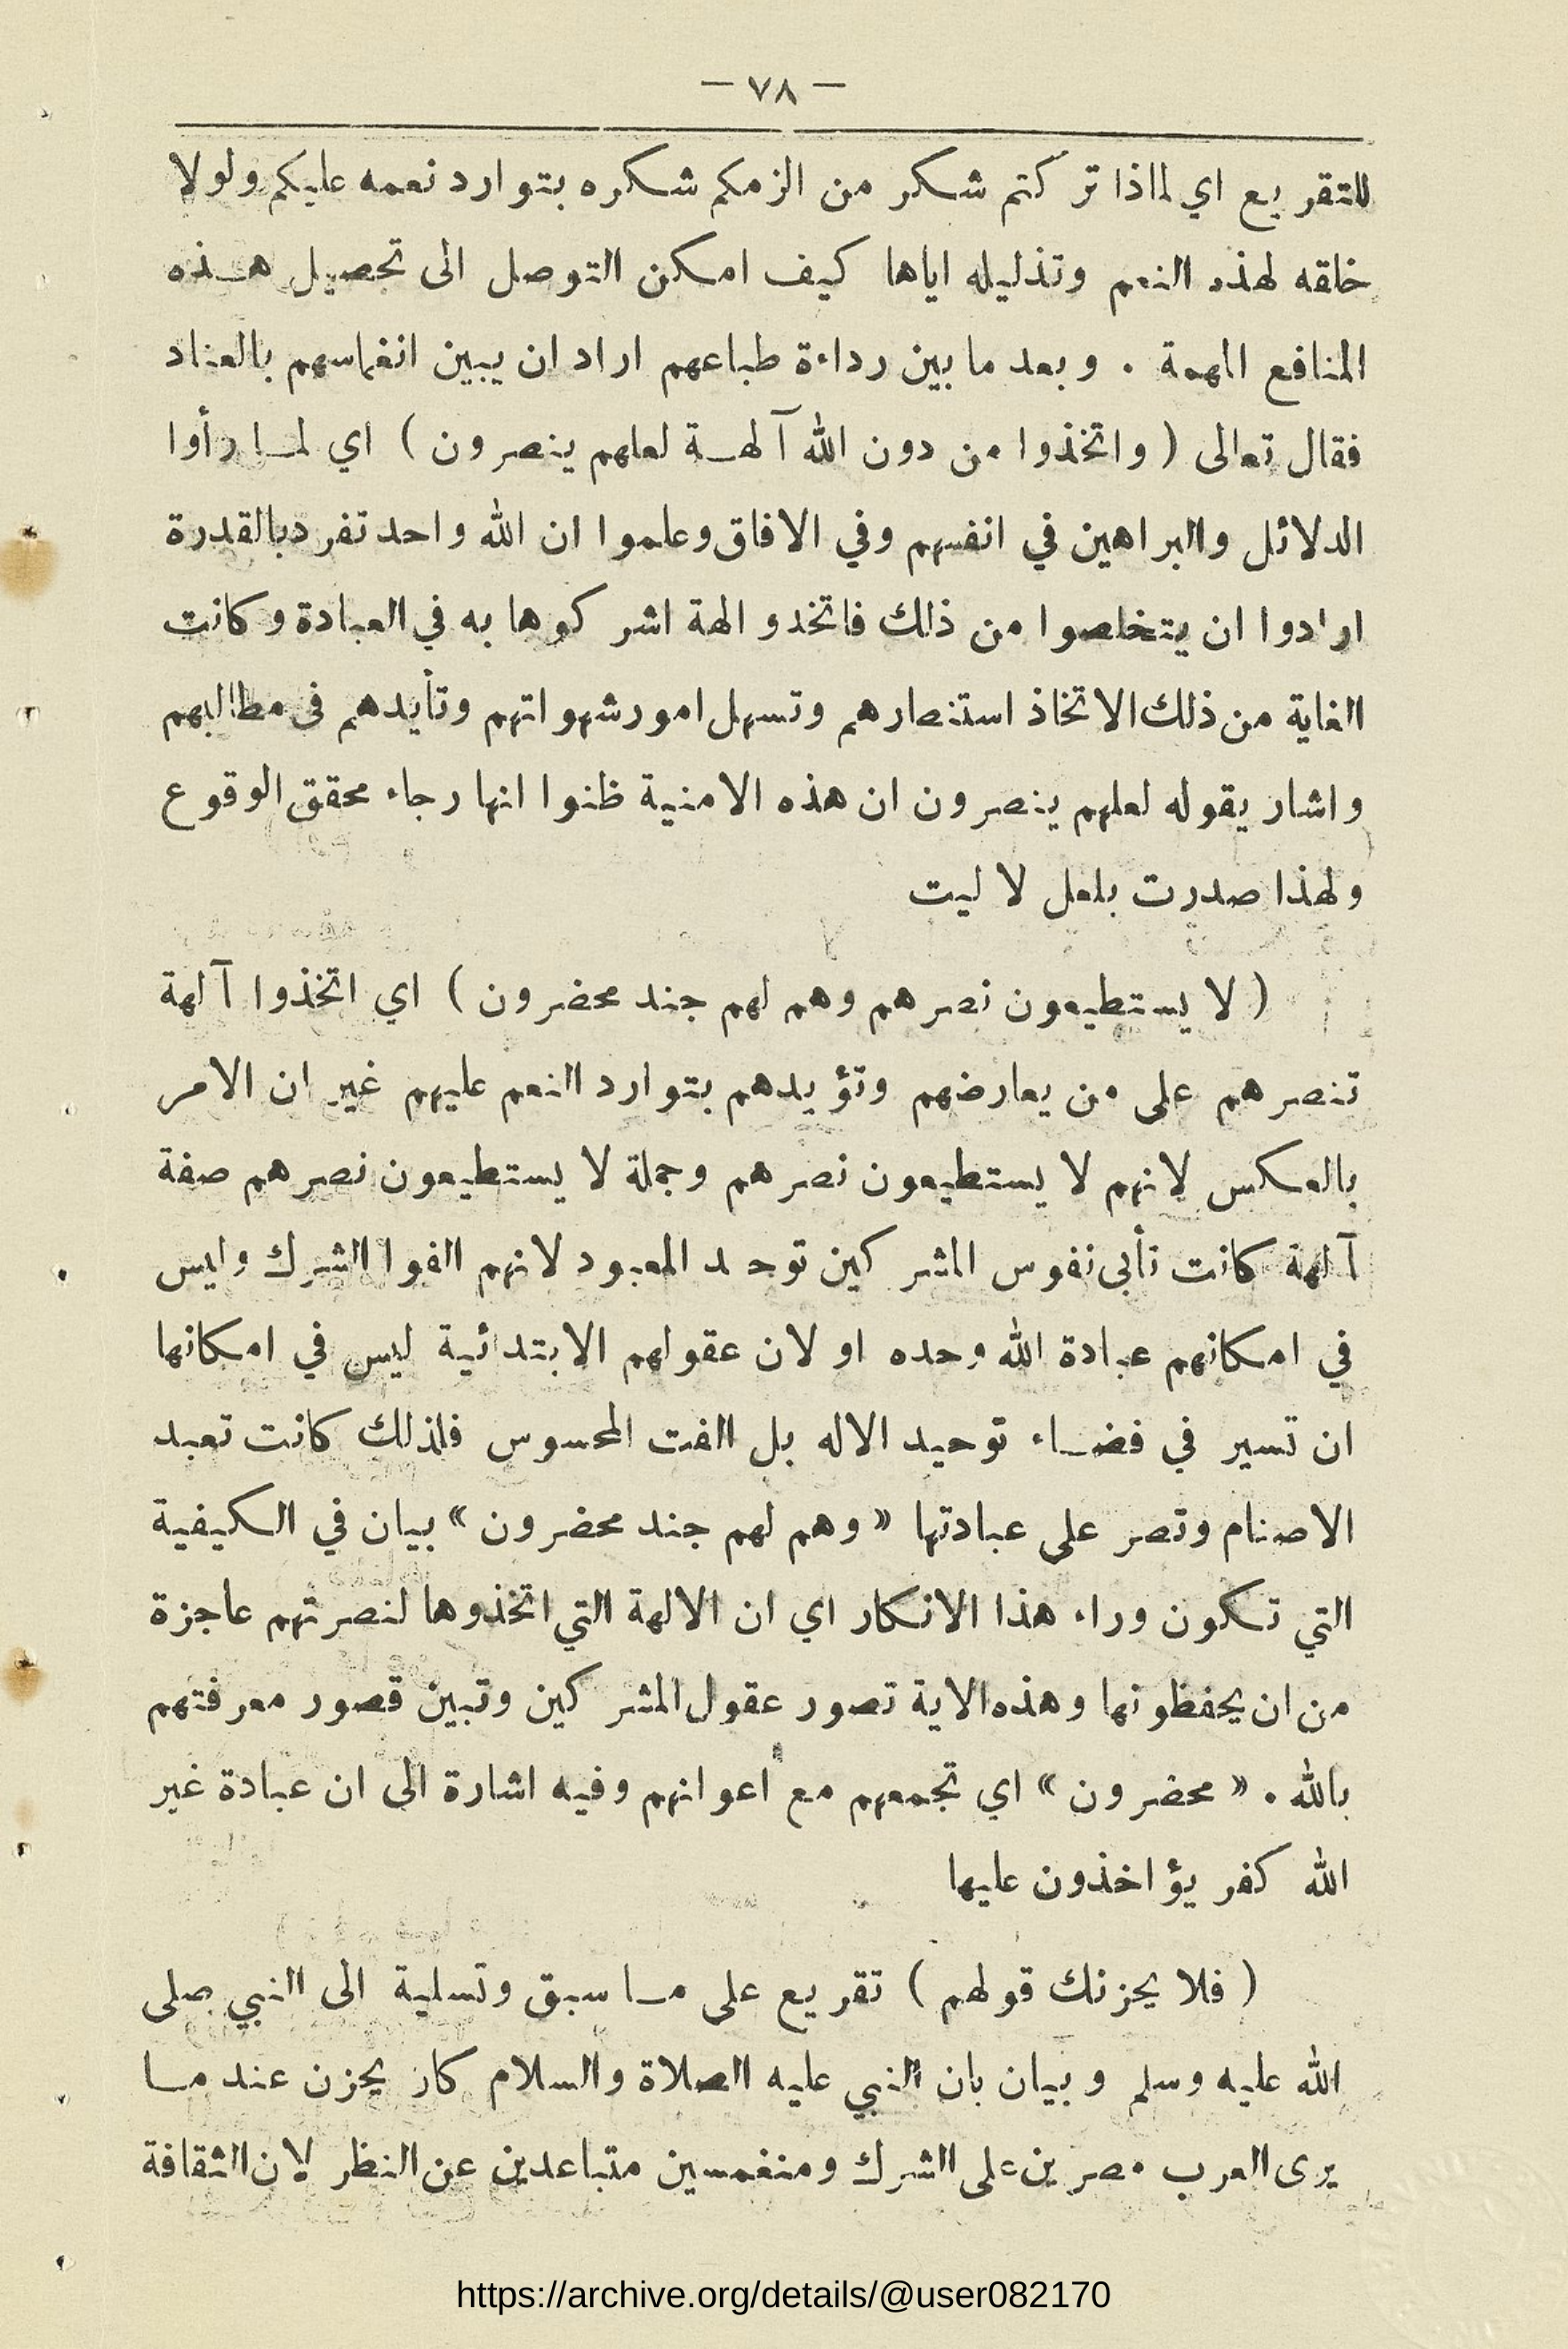 — ٧٨ —
للتقريع اي لماذا تركتم شكر من الزمكم شكره بتوارد نعمه عليكم ولولا
خلقه لهذه النعم وتذليله اياها كيف امكن التوصل الى تحصيل هذه
المنافع المهمة . وبعد ما بين رداءة طباعهم اراد ان يبين انغماسهم بالعناد
فقال تعالى ( واتخذوا من دون الله آلهة لعلهم ينصرون ) اي لما رأوا
الدلائل والبراهين في انفسهم وفي الافاق وعلموا ان الله واحد تفرد بالقدرة
ارادوا ان يتخلصوا من ذلك فاتخدو الهة اشركوها به في العبادة وكانت
الغاية من ذلك الاتخاذ استنصارهم وتسهل امور شهواتهم وتأيدهم في مطالبهم
واشار يقوله لعلهم ينصرون ان هذه الامنية ظنوا انها رجاء محقق الوقوع
ولهذا صدرت بلعل لا ليت
( لا يستطيعون نصرهم وهم لهم جند محضرون ) اي اتخذوا آلهة
تنصرهم على من يعارضهم وتؤيدهم بتوارد النعم عليهم غير ان الامر
بالعكس لانهم لا يستطيعون نصرهم وجملة لا يستطيعون نصرهم صفة
آلهة كانت تأبى نفوس المشركين توحد المعبود لانهم الفوا الشرك وليس
في امكانهم عبادة الله وحده او لان عقولهم الابتدائية ليس في امكانها
ان تسير في فضاء توحيد الاله بل الفت المحسوس فلذلك كانت تعبد
الاصنام وتصر على عبادتها « وهم لهم جند محضرون » بيان في الكيفية
التي تكون وراء هذا الانكار اي ان الالهة التي اتخذوها لنصرتهم عاجزة
من ان يحفظونها وهذه الاية تصور عقول المشركين وتبين قصور معرفتهم
بالله . « محضرون » اي تجمعهم مع اعوانهم وفيه اشارة الى ان عبادة غير
الله كفر يؤاخذون عليها
( فلا يحزنك قولهم ) تقريع على ما سبق وتسلية الى النبي صلى
الله عليه وسلم وبيان بان النبي عليه الصلاة والسلام كان يحزن عند ما
يرى العرب مصرين على الشرك ومنغمسين متباعدين عن النظر لان الثقافة
https://archive.org/details/@user082170